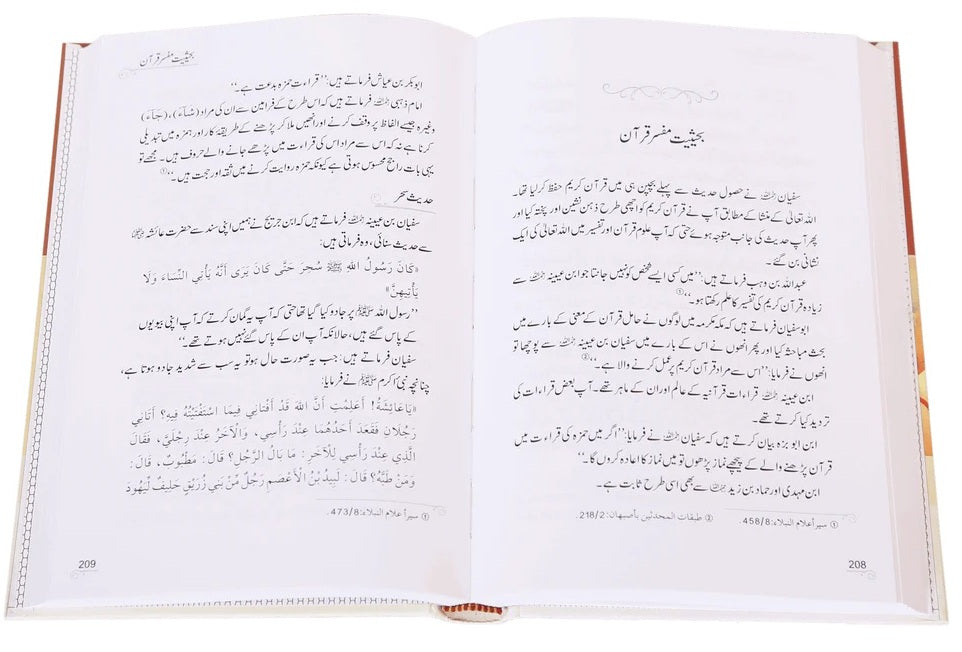 بحیثیت مفسر قرآن
سفیان رحمہ اللہ نے حصول حدیث سے پہلے بچپن ہی میں قرآن کریم حفظ کر لیا تھا۔
اللہ تعالیٰ کے منشا کے مطابق آپ نے قرآن کریم کو اچھی طرح ذہن نشین اور پختہ کیا اور
پھر آپ حدیث کی جانب متوجہ ہوئے حتی کہ آپ علوم قرآن اور تفسیر میں اللہ تعالیٰ کی ایک
نشانی بن گئے۔
عبداللہ بن وہب فرماتے ہیں: ’’میں کسی ایسے شخص کو نہیں جانتا جو ابن عیینہ رحمہ اللہ سے
زیادہ قرآن کریم کی تفسیر کا علم رکھتا ہو۔‘‘①
ابوسفیان فرماتے ہیں کہ مکہ مکرمہ میں لوگوں نے حامل قرآن کے معنی کے بارے میں
بحث مباحثہ کیا اور پھر انھوں نے اس کے بارے میں سفیان بن عیینہ رحمہ اللہ سے پوچھا تو
انھوں نے فرمایا: ’’اس سے مراد قرآن کریم پر عمل کرنے والا ہے۔‘‘②
ابن عیینہ رحمہ اللہ قراءات قرآنیہ کے عالم اور ان کے ماہر تھے۔ آپ بعض قراءات کی
تردید کیا کرتے تھے۔
ابن ابو بزہ بیان کرتے ہیں کہ سفیان رحمہ اللہ نے فرمایا: ’’اگر میں حمزہ کی قراءت میں
قرآن پڑھنے والے کے پیچھے نماز پڑھوں تو میں نماز کا اعادہ کروں گا۔‘‘
ابن مہدی اور حماد بن زید رحمہ اللہ سے بھی اسی طرح ثابت ہے۔
① سیر أعلام النبلاء: 458/8. ② طبقات المحدثین بأصبهان: 218/2.
208
بحیثیت مفسر قرآن
ابوبکر بن عیاش فرماتے ہیں: ’’قراءت حمزہ بدعت ہے۔‘‘
امام ذہبی رحمہ اللہ فرماتے ہیں کہ اس طرح کے فرامین سے ان کی مراد (شَاءَ)، (جَاءَ)
وغیرہ جیسے الفاظ پر وقف کرنے اور انھیں ملا کر پڑھنے کے طریقۂ کار اور ہمزہ میں تبدیلی
کرنا ہے نہ کہ اس سے مراد اس کی قراءت میں پڑھے جانے والے حروف ہیں۔ مجھے تو
یہی بات راجح محسوس ہوتی ہے کیونکہ حمزہ روایت کرنے میں ثقہ اور حجت ہیں۔‘‘①
حدیث سحر
سفیان بن عیینہ رحمہ اللہ فرماتے ہیں کہ ابن جریج نے ہمیں اپنی سند سے حضرت عائشہ رضی اللہ عنہا
سے حدیث سنائی، وہ فرماتی ہیں:
«كَانَ رَسُولُ اللهِ ﷺ سُحِرَ حَتَّى كَانَ يَرَى أَنَّهُ يَأْتِي النِّسَاءَ وَلَا
يَأْتِيهِنَّ»
’’رسول اللہ ﷺ پر جادو کیا گیا تھا حتی کہ آپ یہ گمان کرتے کہ آپ اپنی بیویوں
کے پاس گئے ہیں، حالانکہ آپ ان کے پاس گئے نہیں ہوتے تھے۔‘‘
سفیان فرماتے ہیں: جب یہ صورت حال ہو تو یہ سب سے شدید جادو ہوتا ہے،
چنانچہ نبی اکرم ﷺ نے فرمایا:
«يَا عَائِشَةُ! أَعَلِمْتِ أَنَّ اللهَ قَدْ أَفْتَانِي فِيمَا اسْتَفْتَيْتُهُ فِيهِ؟ أَتَانِي
رَجُلَانِ فَقَعَدَ أَحَدُهُمَا عِنْدَ رَأْسِي، وَالْآخَرُ عِنْدَ رِجْلَيَّ، فَقَالَ
الَّذِي عِنْدَ رَأْسِي لِلْآخَرِ: مَا بَالُ الرَّجُلِ؟ قَالَ: مَطْبُوبٌ، قَالَ:
وَمَنْ طَبَّهُ؟ قَالَ: لَبِيدُ بْنُ الْأَعْصَمِ رَجُلٌ مِّنْ بَنِي زُرَيْقٍ حَلِيفٌ لِّيَهُودَ
① سیر أعلام النبلاء: 473/8.
209